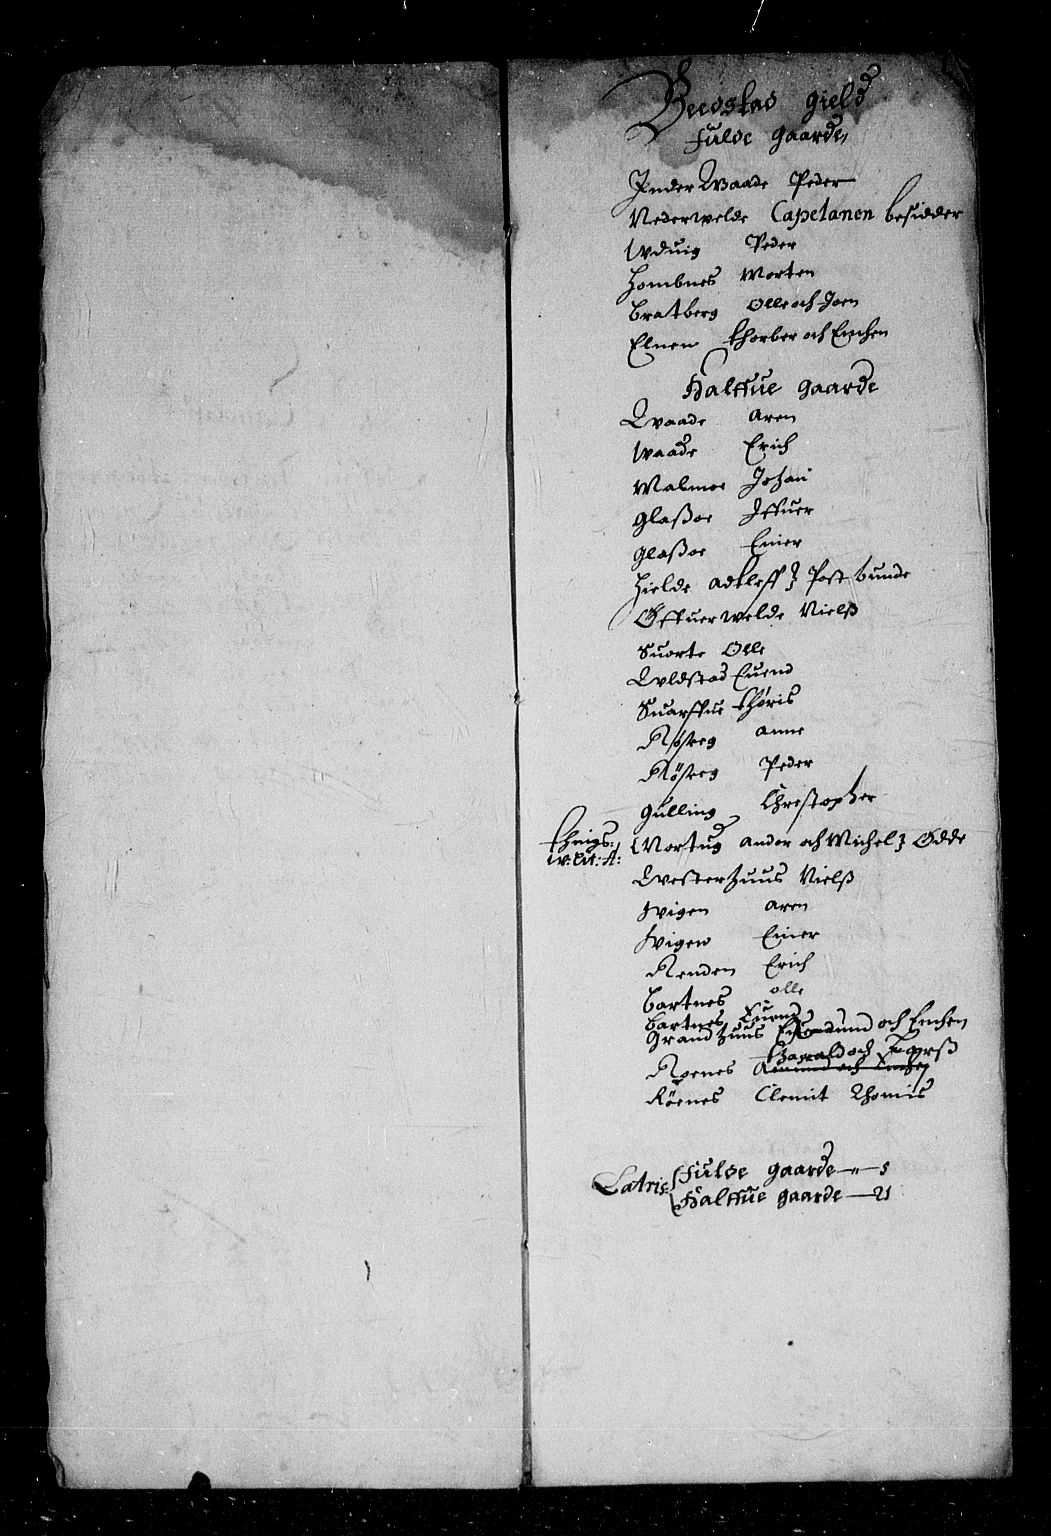 Beedstad gield
Fulde gaarde,
Inder Qvaade Peder
Nederwelde Capetanen besidder
Wduig Peder
Hombnes Morten
Bratberg Olle och Joen
Elnen thorber och Einchen
Halffue gaarde
Qvaade Aren
Waade Erich
Malmoe Johan
Glaßoe Iffuer
Glaßoe Einer
Hielde Adtleff} Post bunde
Øffuerwelde Nielß
Suorte Olle
Qvldstad Euend
Suarffue thøris
Røsseg Anne
Røsseg Peder
Gulling Christopher
things:
w: Lit: A: {Wortug Ander och Michel} Ødde
Qvesterhuus Nielß
Hvigen Aren
Hvigen Einer
Renden Erich
Bartnes olle
Bartnes Euend
Grandhuus Amund och Einchen
Roenes Haraldoch Larß
Röenes Clemit Thomis
Latris: {Fulde gaarde — 5
Halffue gaarde — 21